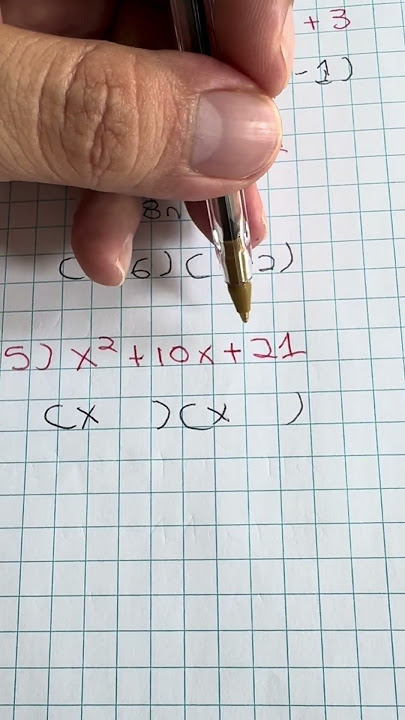 + 3
-1)
8n
( 6)( 2)
5) x² + 10x + 21
(x )(x )